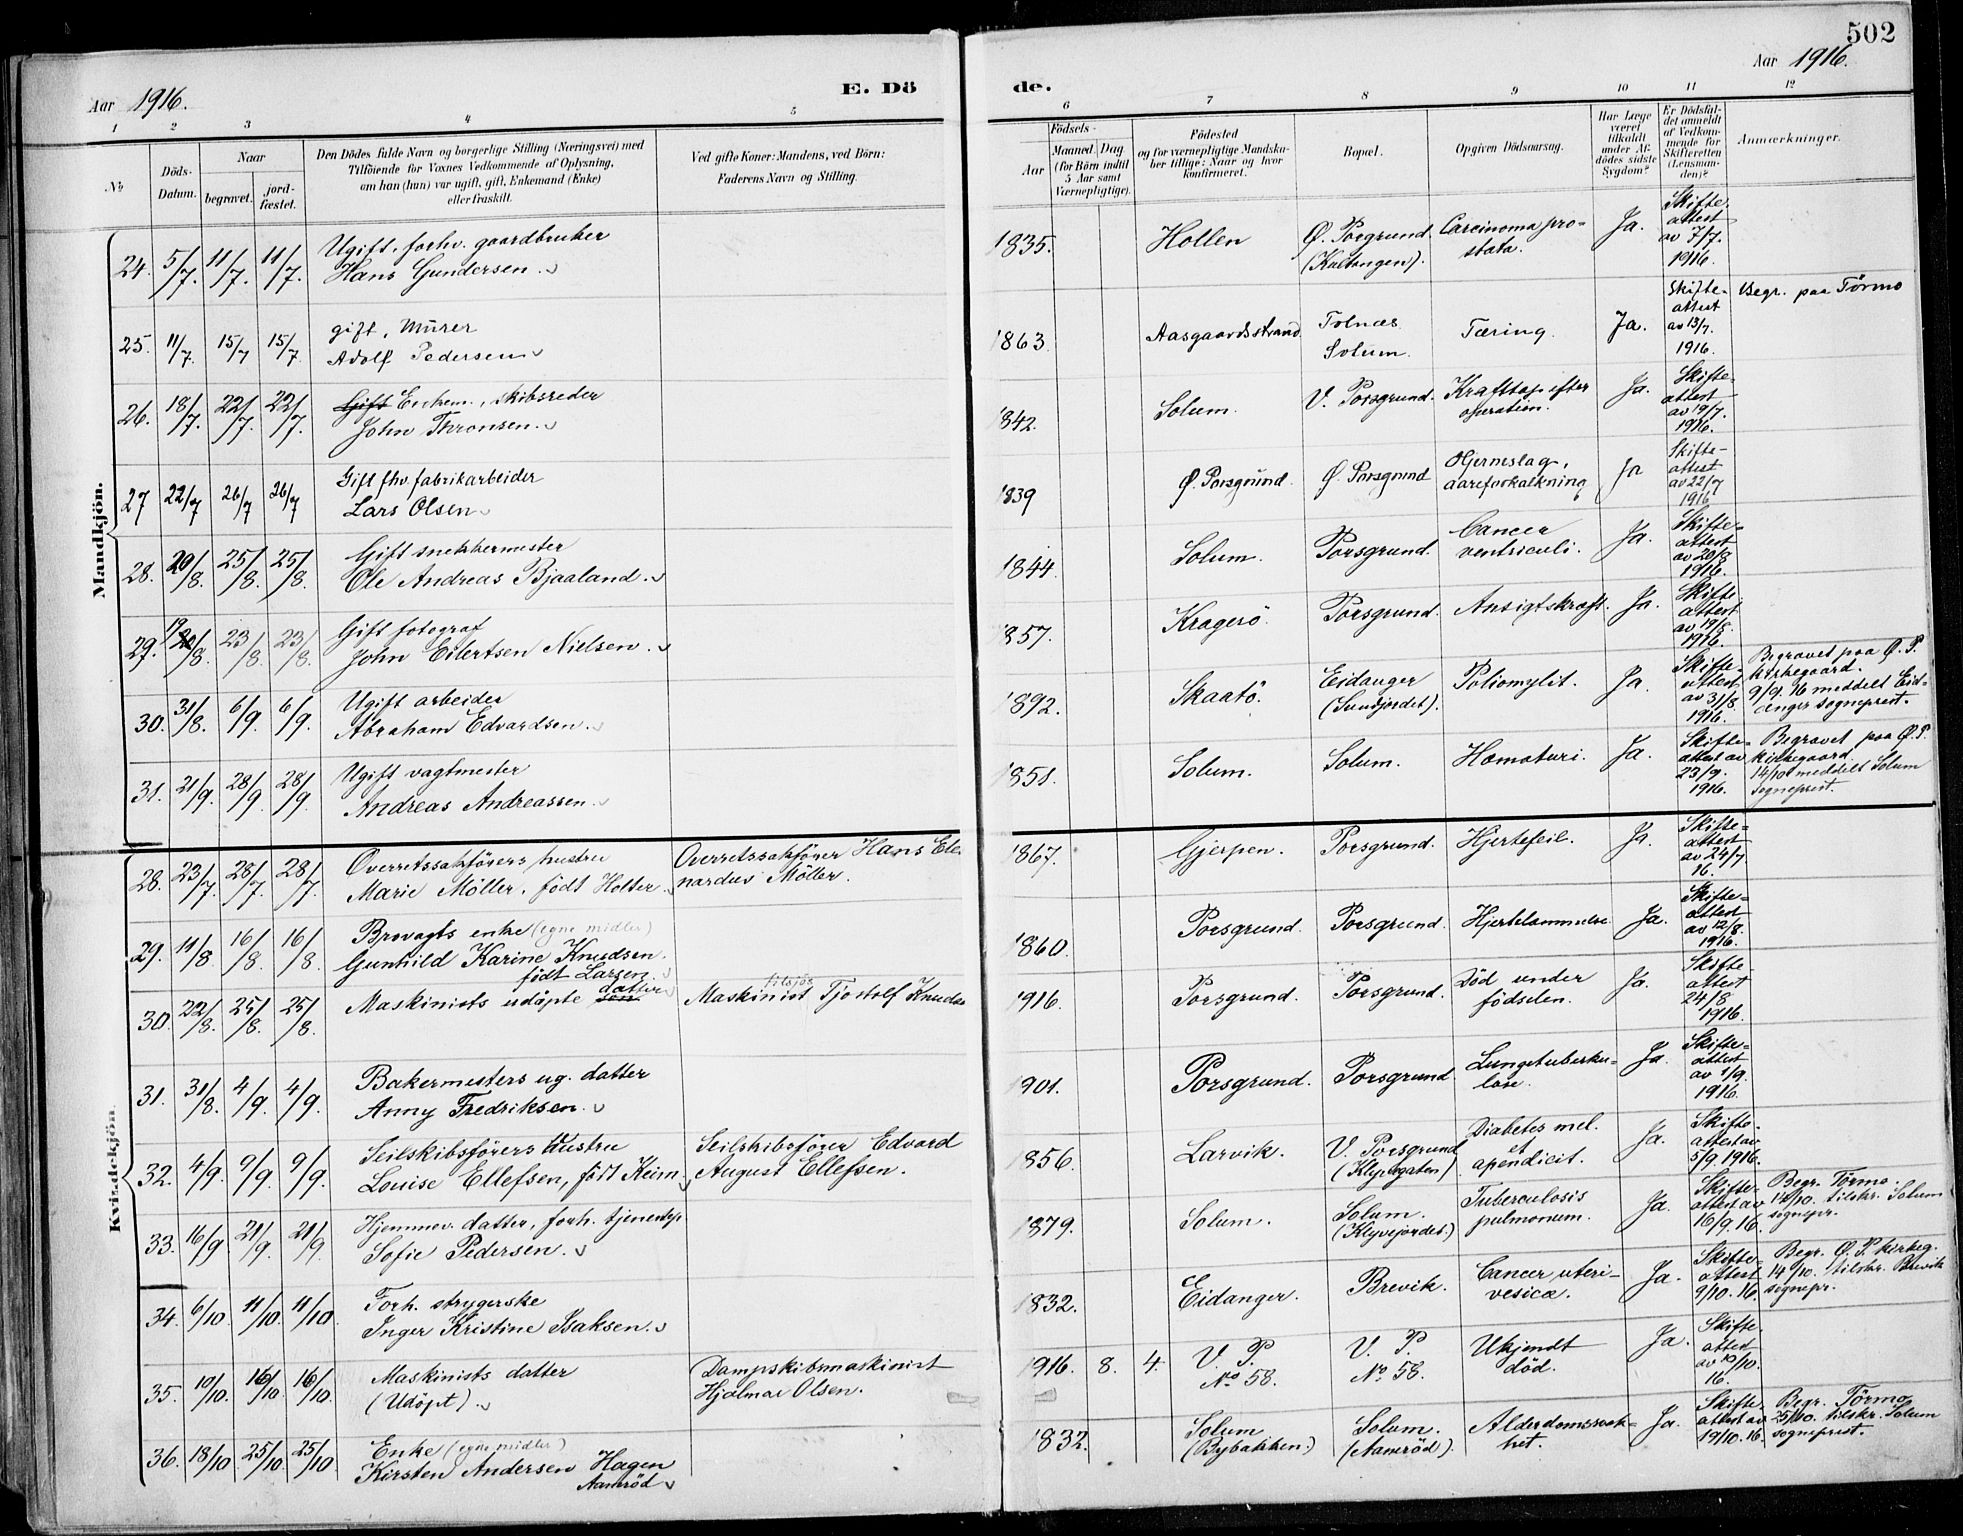 502
Aar 1916.
E. Dö
de.
Aar 1916.
1 2 3 4 5 6 7 8 9 10 11 12
№
Döds-
Datum.
Naar
begravet.
jord-
fæstet.
Den Dödes fulde Navn og borgerlige Stilling (Næringsvei) med
Tilföiende for Voxnes Vedkommende af Oplysning,
om han (hun) var ugift, gift, Enkemand (Enke)
eller fraskilt.
Ved gifte Koner: Mandens, ved Börn:
Faderens Navn og Stilling.
Födsels-
Aar
Maaned. Dag
(for Börn indtil
5 Aar samt
Værnepligtige).
Födested
og for værnepligtige Mandska-
ber tillige: Naar og hvor
konfirmeret.
Bopæl.
Opgiven Dödsaarsag.
Har Læge
været
tilkaldt
under Af-
dödes sidste
Sygdom?
Er Dödsfal-
det anmeldt
af Vedkom-
mende for
Skifteretten
(Lensman-
den)?
Anmærkninger.
Mandkjön.
24. 5/7. 11/7. 11/7. Ugift, forhv. gaardbruker
Hans Gundersen.
1835. Hollen Ø. Porsgrund. Carcinoma pro-
stata. Ja. Skifte-
attest
av 7/7.
1916.
25. 11/7. 15/7 15/7. gift, Murer
Adolf Pedersen
1863. Aasgaardsstrand Tolnæs
Solum. Tæring. Ja. Skifte-
attest
av 13/7.
1916. Begr. paa Törmo
26. 18/7. 22/7. 22/7. Gift Enkem., skibsreder
John Thronsen.
1842. Solum. V. Porsgrund. Krafttap efter
operation. Ja. Skifte-
attest
av 19/7.
1916.
27 22/7 26/7 26/7 Gift fhv. fabrikarbeider
Lars Olsen
1839 Ø. Porsgrund. Ø. Porsgrund Hjerneslag,
aareforkalkning Ja Skifte-
attest
av 22/7
1916
28. 20/8. 25/8. 25/8. Gift snekkermester
Ole Andreas Bjaaland.
1844. Solum. Porsgrund. Cancer
ventriculi. Ja. Skifte-
attest
av 20/8
1916.
29. 19/8. 23/8. 23/8. Gift fotograf
John Eilertsen Nielsen.
1857. Kragerö. Porsgrund. Ansigtskræft. Ja. Skifte
attest
av 19/8.
1916.
30. 31/8. 6/9. 6/9. Ugift arbeider
Abraham Edvardsen.
1892. Skaatö. Eidanger
(Sundjordet). Poliomylit. Ja. Skifte-
attest
av 31/8.
1916. Begravet paa Ø. P.
kirkegaard.
9/9. 16 meddelt Eid-
anger sogneprest.
31. 21/9. 28/9. 28/9. Ugift vagtmester
Andreas Andreassen.
1851. Solum. Solum. Hæmaturi. Ja. Skifte-
attest av
23/9.
1916. Begravet paa Ø. P.
kirkegaard
14/10 meddelt Solum
sogneprest.
Kvindekjön.
28. 23/7. 28/7. 28/7. Overretssakförers hustru
Marie Möller, födt Holter.
Overretssakförer Hans Ele-
nardus Möller.
1867. Gjerpen. Porsgrund. Hjertefeil. Ja. Skifte-
attest
av 24/7
16.
29. 11/8. 16/8. 16/8. Brovagts enke (egne midler)
Gunhild Karine Knudsen.
födt Larsen.
1860. Porsgrund. Porsgrund. Hjertelammelse. Ja. Skifte-
attest
av 12/8.
1916.
30. 22/8. 25/8. 25/8. Maskinists udöpte sön datter
Maskinist Tjostolf Knudsen
1916. Porsgrund. Porsgrund. Död under
födselen. Ja. Skifte
attest
24/8
1916.
31. 31/8. 4/9. 4/9. Bakermesters ug. datter
Anny Fredriksen.
1901. Porsgrund. Porsgrund Lungetuberku-
lose. Ja. Skifte-
attest
av 1/9.
1916.
32. 4/9. 9/9. 9/9. Seilskibsförers hustru
Louise Ellefsen, födt Keim.
Seilskibsförer Edvard
August Ellefsen.
1856. Larvik. V. Porsgrund
(Klyvegaten) Diabetes mel.
et
apendicit. Ja. Skifte-
attest av
5/9. 1916.
33. 16/9. 21/9. 21/9. Hjemmev. datter, forh. tjenestep.
Sofie Pedersen.
1879. Solum. Solum.
(Klyvejordet.) Tuberculosis
pulmonum. Ja. Skifte-
attest av
16/9. 16. Begr. Törmo.
14/10. tilskr. Solum
sognepr.
34. 6/10. 11/10. 11/10. Forh. strygerske
Inger Kristine Isaksen.
1832. Eidanger. Brevik. Cancer uteri-
vesica. Ja. Skifte-
attest
9/10. 16. Begr. Ø. P. kirkeg.
14/10. tilskr. Brevik
sognepr.
35. 10/10. 16/10. 16/10. Maskinists datter
(Udöpt).
Dampskibsmaskinist
Hjalmar Olsen.
1916. 8. 4. V. P.
No 58. V. P.
No 58. Ukjendt
död. Ja. Skifte
attest
av 10/10.
16.
36. 18/10. 25/10. 25/10 Enke (egne midler)
Kirsten Andersen Hagen
Aamröd
1832. Solum
(Bybakken.) Solum.
(Aamröd). Alderdomssvak-
het. Ja. Skifte-
attest av
19/10. 16. Begr. Törmo
25/10. tilskr. Solum
sogneprest.